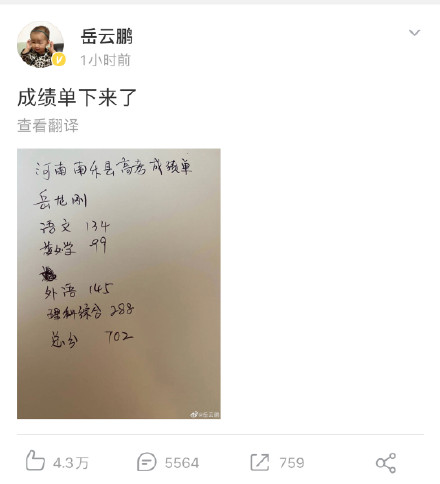 岳云鹏
1小时前
成绩单下来了
查看翻译
河南南乐县高考成绩单
岳龙刚
语文 134
数学 99
外语 145
理科综合 288
总分 702
@岳云鹏
4.3万
5564
759